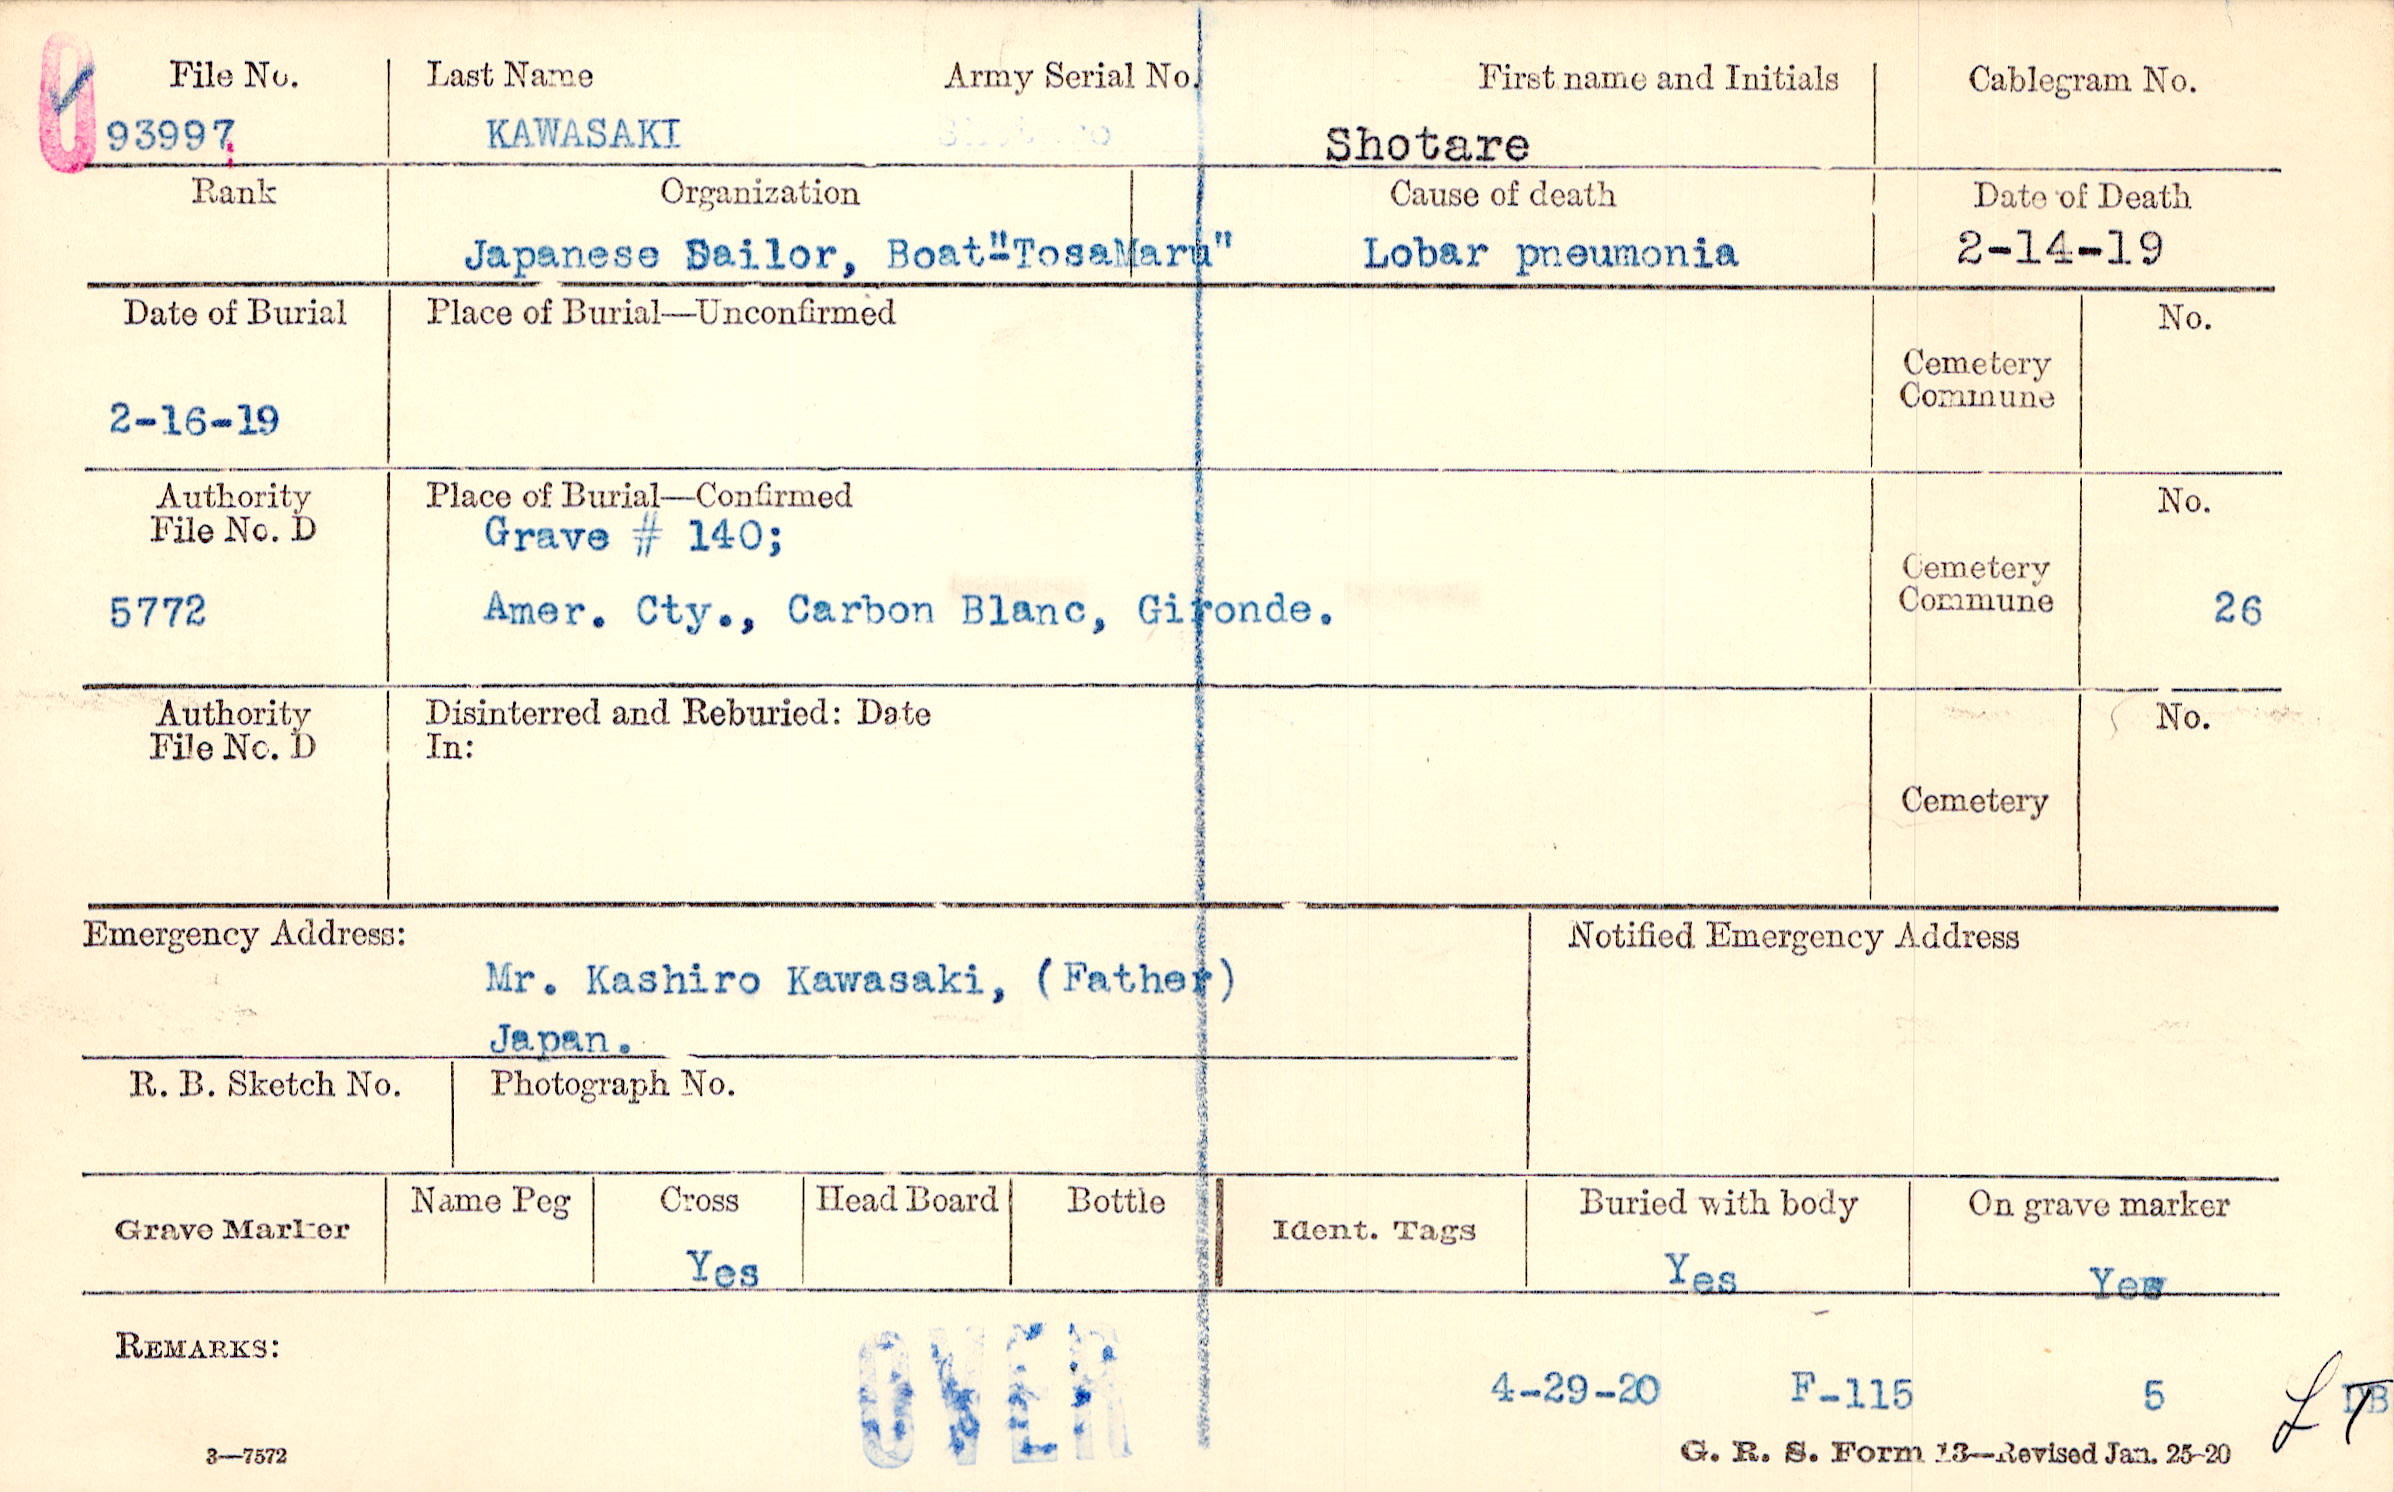 File No.
Last Name
Army Serial No.
First name and Initials
Cablegram No.
93997
KAWASAKI
Shotare
Rank
Organization
Cause of death
Date of Death
Japanese Sailor, Boat-"TosaMaru"
Lobar pneumonia
2-14-19
Date of Burial
Place of Burial—Unconfirmed
Cemetery
Commune
No.
2-16-19
Authority
File No. D
Place of Burial—Confirmed
Cemetery
Commune
No.
Grave # 140;
5772
Amer. Cty., Carbon Blanc, Gironde.
26
Authority
File No. D
Disinterred and Reburied: Date
In:
Cemetery
No.
Emergency Address:
Notified Emergency Address
Mr. Kashiro Kawasaki, (Father)
Japan.
R. B. Sketch No.
Photograph No.
Grave Marker
Name Peg
Cross
Yes
Head Board
Bottle
Ident. Tags
Buried with body
Yes
On grave marker
Yes
REMARKS:
OVER
4-29-20 F-115 5
3—7572
G. R. S. Form 13—Revised Jan. 25-20